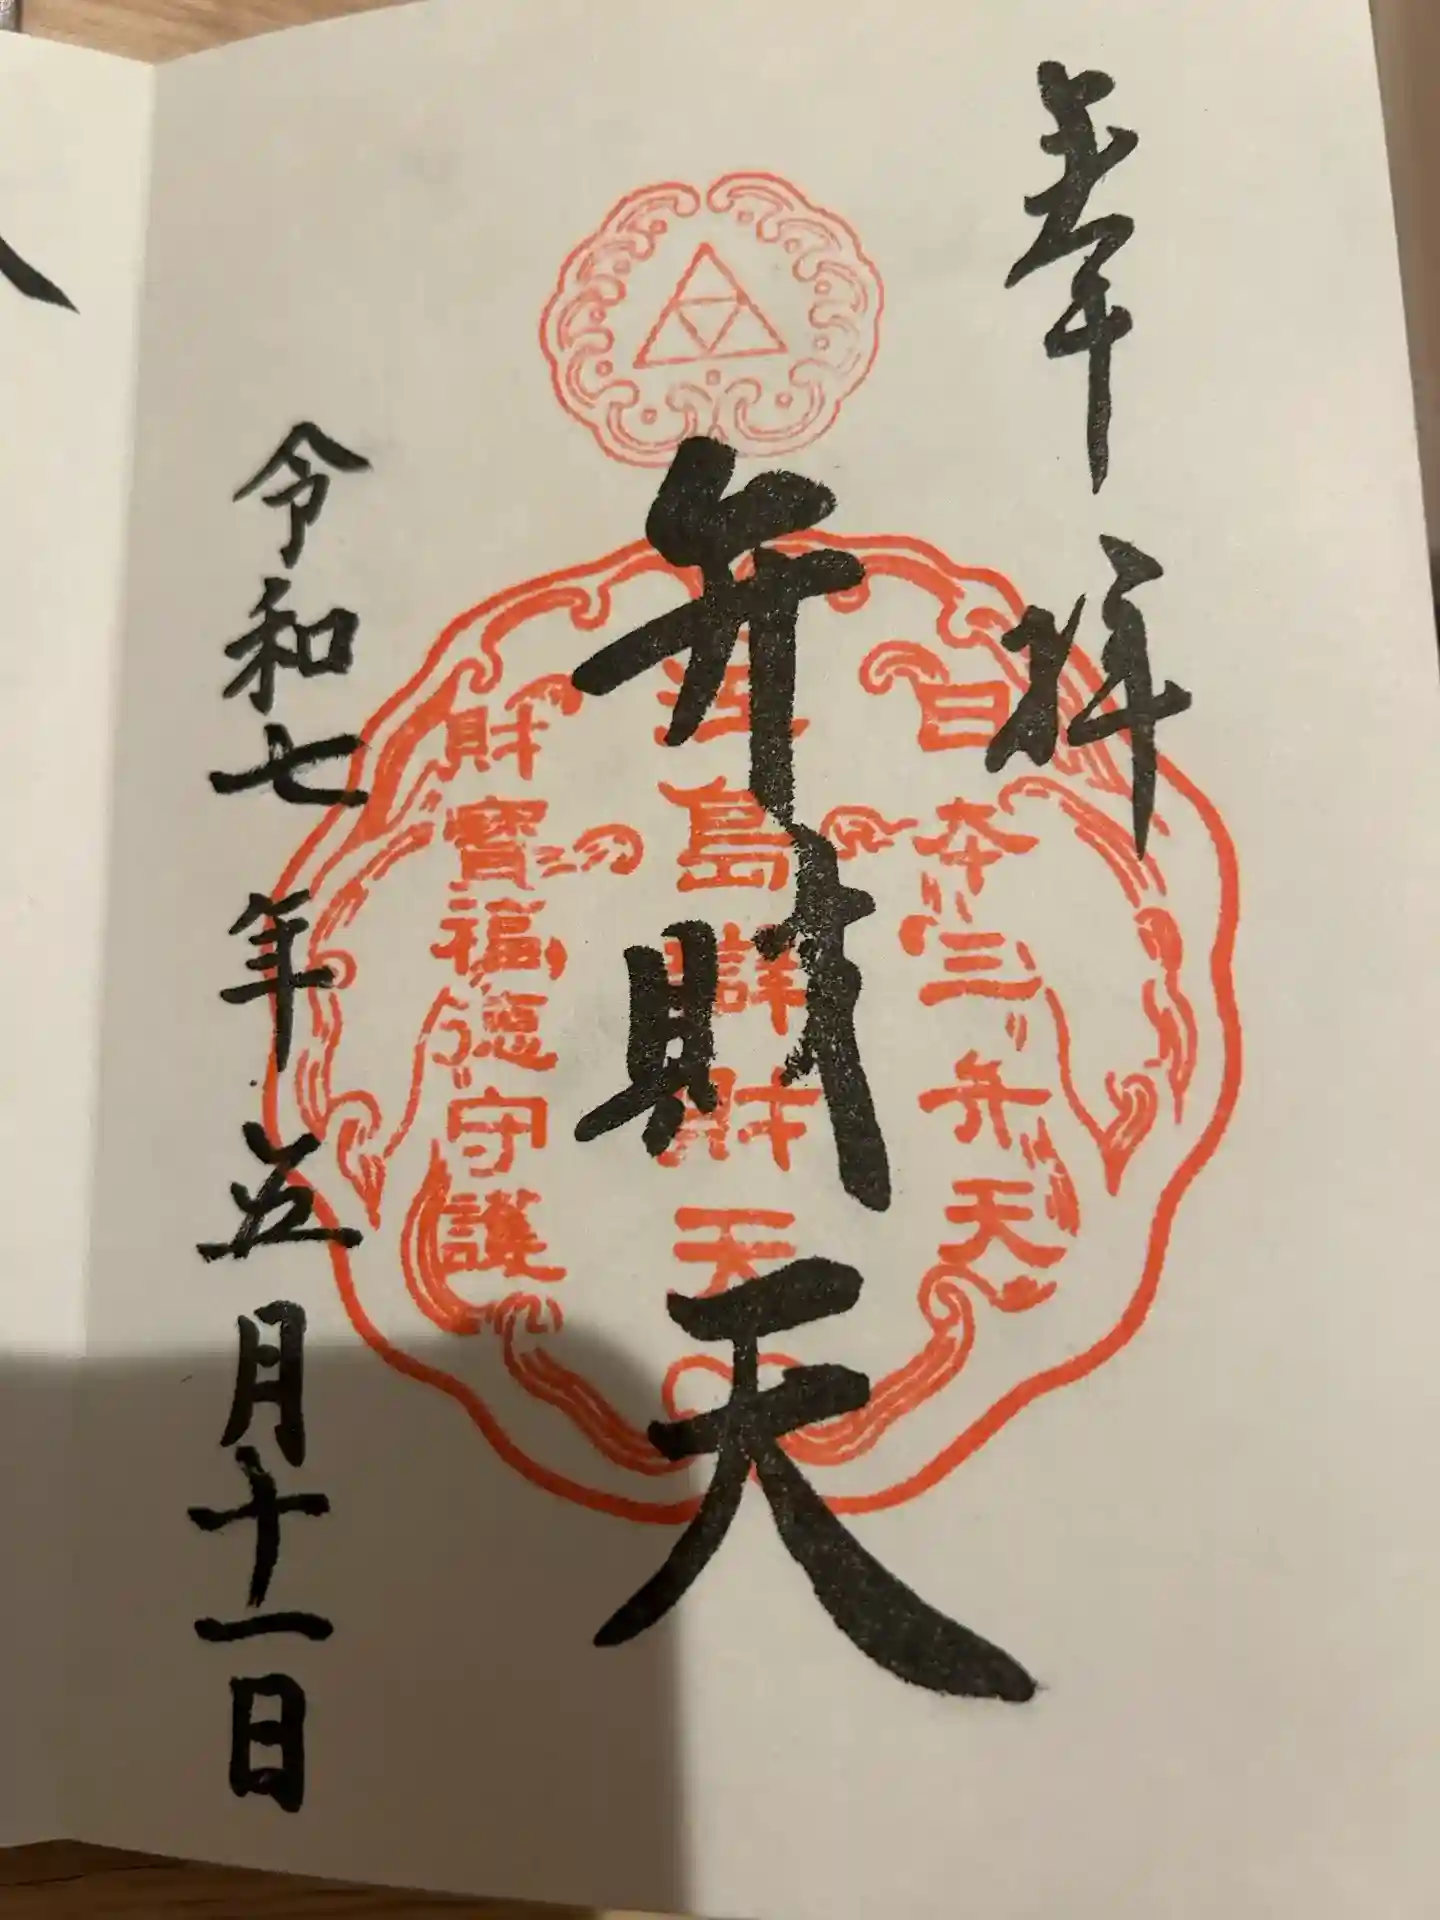 奉拝
日本三弁天
弁財天
江島辯財天
財寶福徳守護
令和七年五月十一日